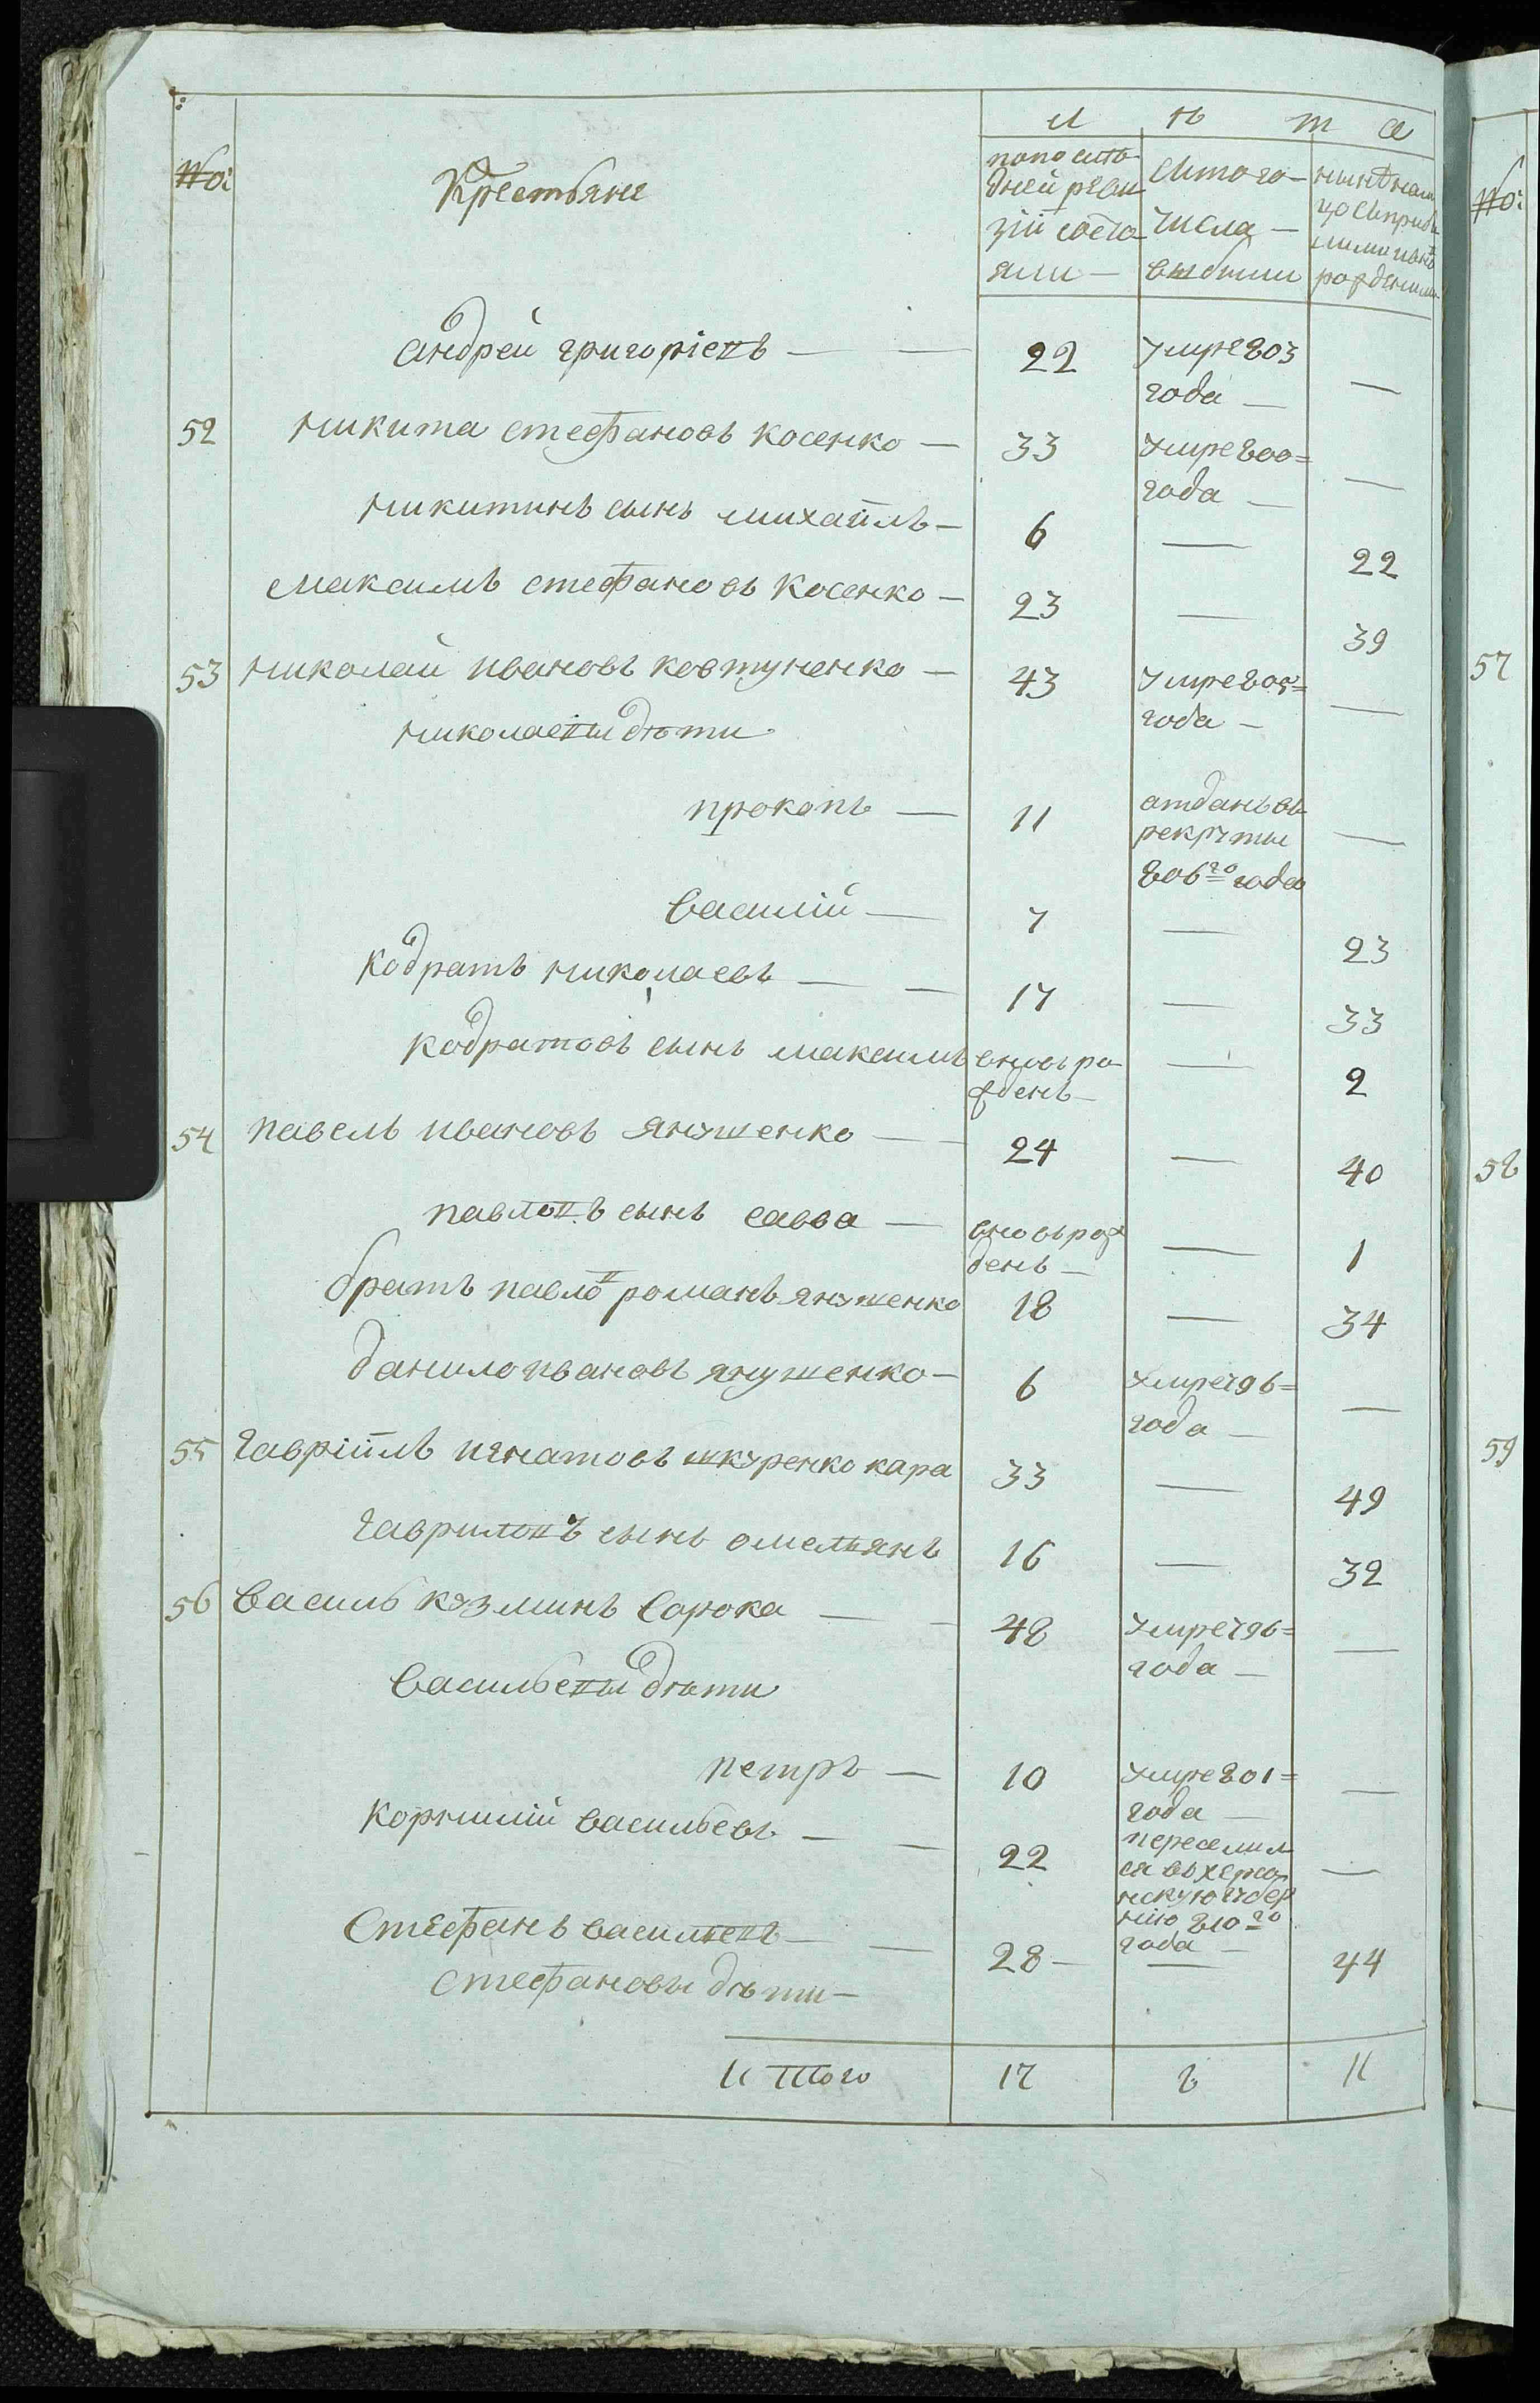 Лѣта
№: Крестьяне
по послѣ- изъ того- нынѣ на ли-
дней реви- числа- цо съ прибы-
зіи состо- выбыли лыми и вновь
яли- рожденными
Андрей григоріевъ — — 22 умре 803 —
года —
52 Никита Стефановъ Косенко — 33 умре 800= —
года —
Никитинъ сынъ Михайлъ — 6 — 22
Максимъ Стефановъ Косенко — 23 — 39
53 Николай Ивановъ Ковтуненко — 43 умре 805= —
года —
Николаевы дѣти
Прокопъ — 11 атданъ въ —
рекруты
806го года
Василій — 7 — 23
Кодратъ Николаевъ — — 17 — 33
Кодратовъ сынъ Максимъ вновь ро- — 2
жденъ —
54 Павелъ Ивановъ Янушенко — — 24 — 40
Павловъ сынъ Савва — вновь рож — 1
денъ —
братъ Павло Романъ Янушенко 18 — 34
Данило Ивановъ Янушенко — 6 умре 796= —
года —
55 Гавріилъ Игнатовъ Шкуренко кара 33 — 49
Гавриловъ сынъ Омельянъ 16 — 32
56 Василь Кузминъ Сорока — — 48 умре 796= —
года —
Васильевы дѣти
Петръ — 10 умре 801= —
года —
Корнилій Васильевъ — — 22 переселил —
ся въ херсо
нскую губер
нію 810го
года —
Стефанъ Васильевъ — — 28 — — 44
Стефановы дѣти —
Итого 17 8 11
№:
57
58
59